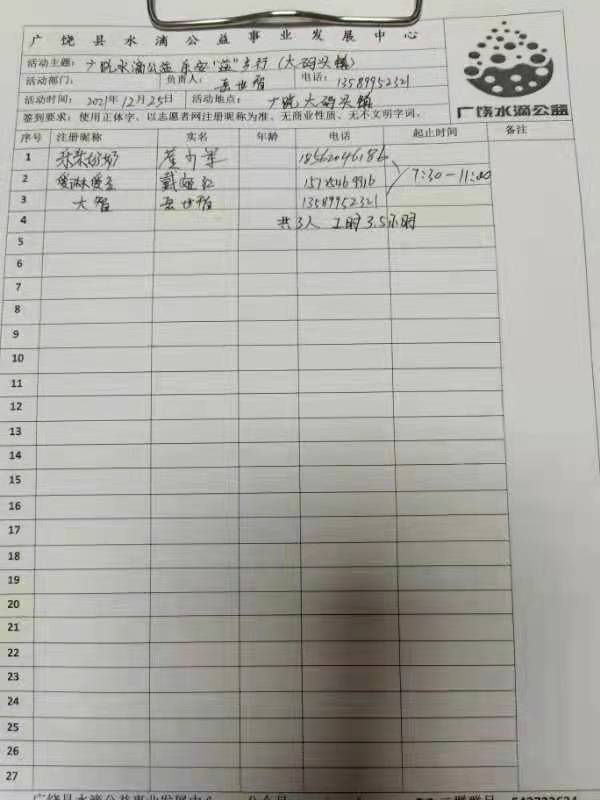 广饶县水滴公益事业发展中心
活动主题：广饶水滴公益 乐安“益”步行（大码头镇）
活动部门： 负责人：岳世智 电话：13589952321
活动时间：2021年12月25日 活动地点：广饶大码头镇
签到要求：使用正体字、以志愿者网注册昵称为准、无商业性质、无不文明字词。
广饶水滴公益
序号 注册昵称 实名 年龄 电话 起止时间 备注
1 18562046186
2 戴 7:30-11:00
3 大智 岳世智 13589952321
4 共3人 工时3.5小时
5
6
7
8
9
10
11
12
13
14
15
16
17
18
19
20
21
22
23
24
25
26
27
广饶县水滴公益事业发展中心